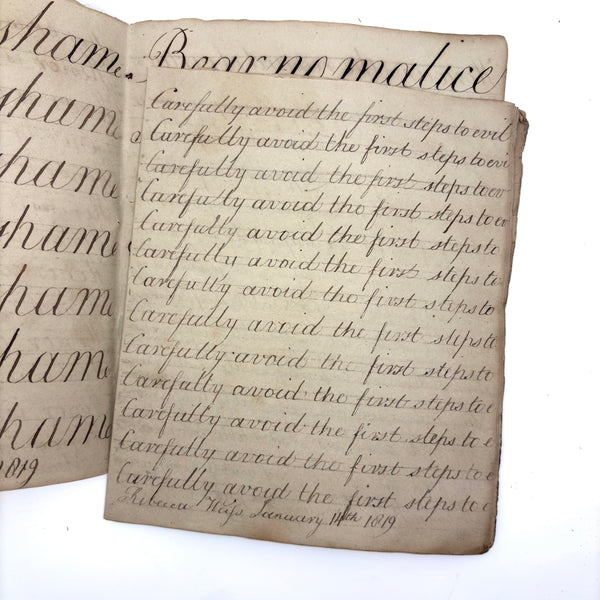 shame
shame
hame
shame
hame
hame
hame
1819
Bear no malice
Carefully avoid the first steps to evil
Carefully avoid the first steps to evi
Carefully avoid the first steps to ev
Carefully avoid the first steps to ev
Carefully avoid the first steps to
Carefully avoid the first steps to
Carefully avoid the first steps to
Carefully avoid the first steps to
Carefully avoid the first steps to
Carefully avoid the first steps to e
Carefully avoid the first steps to e
Carefully avoid the first steps to e
Carefully avoid the first steps to e
Rebecca Weiſs January 14th 1819